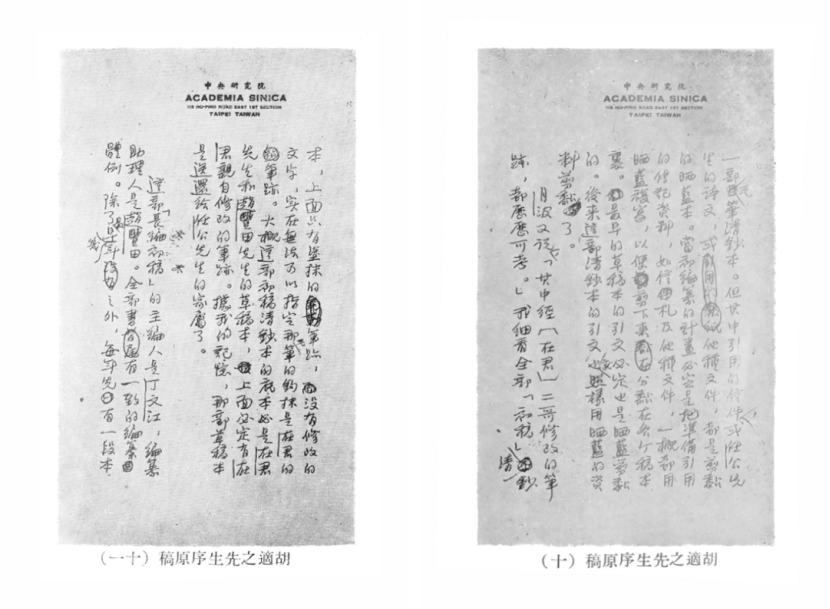 中央研究院
ACADEMIA SINICA
TAIPEI TAIWAN
一部毛筆清鈔本。但其中引用的信件或任公先
生的詩文,或引用的他種文件,都是剪黏
的晒藍本。當初編纂的計畫必定是把準備引用
的傳記資料,如信札及他種文件,一概都用
晒藍複寫,以便剪下來分黏在各個稿本
裏。最早的草稿本的引文必定也是晒藍剪黏
的。後來這部清鈔本的引文也照樣用晒藍的資
料剪黏了。
月波又說,「其中經「在君」二哥修改的筆
跡,都歷歷可考。」我細看全部「初稿」清鈔
胡適之先生序原稿(十)
中央研究院
ACADEMIA SINICA
TAIPEI TAIWAN
本,上面只有塗抹的筆跡,沒有修改的
文字,實在無法可以指定那筆的鈎抹是在君的
筆跡。大概這部初稿清鈔本的底本必是在君
先生和趙豐田先生的草稿本,上面必定有在
君親自修改的筆跡。據我的記憶,那部草稿本
是送還給任公先生的家屬了。
這部「長編初稿」的主編人是丁文江,編纂
助理人是趙豐田。全部書有一致的編纂
體例。除了最早幾年之外,每年先有一段本
胡適之先生序原稿(十一)